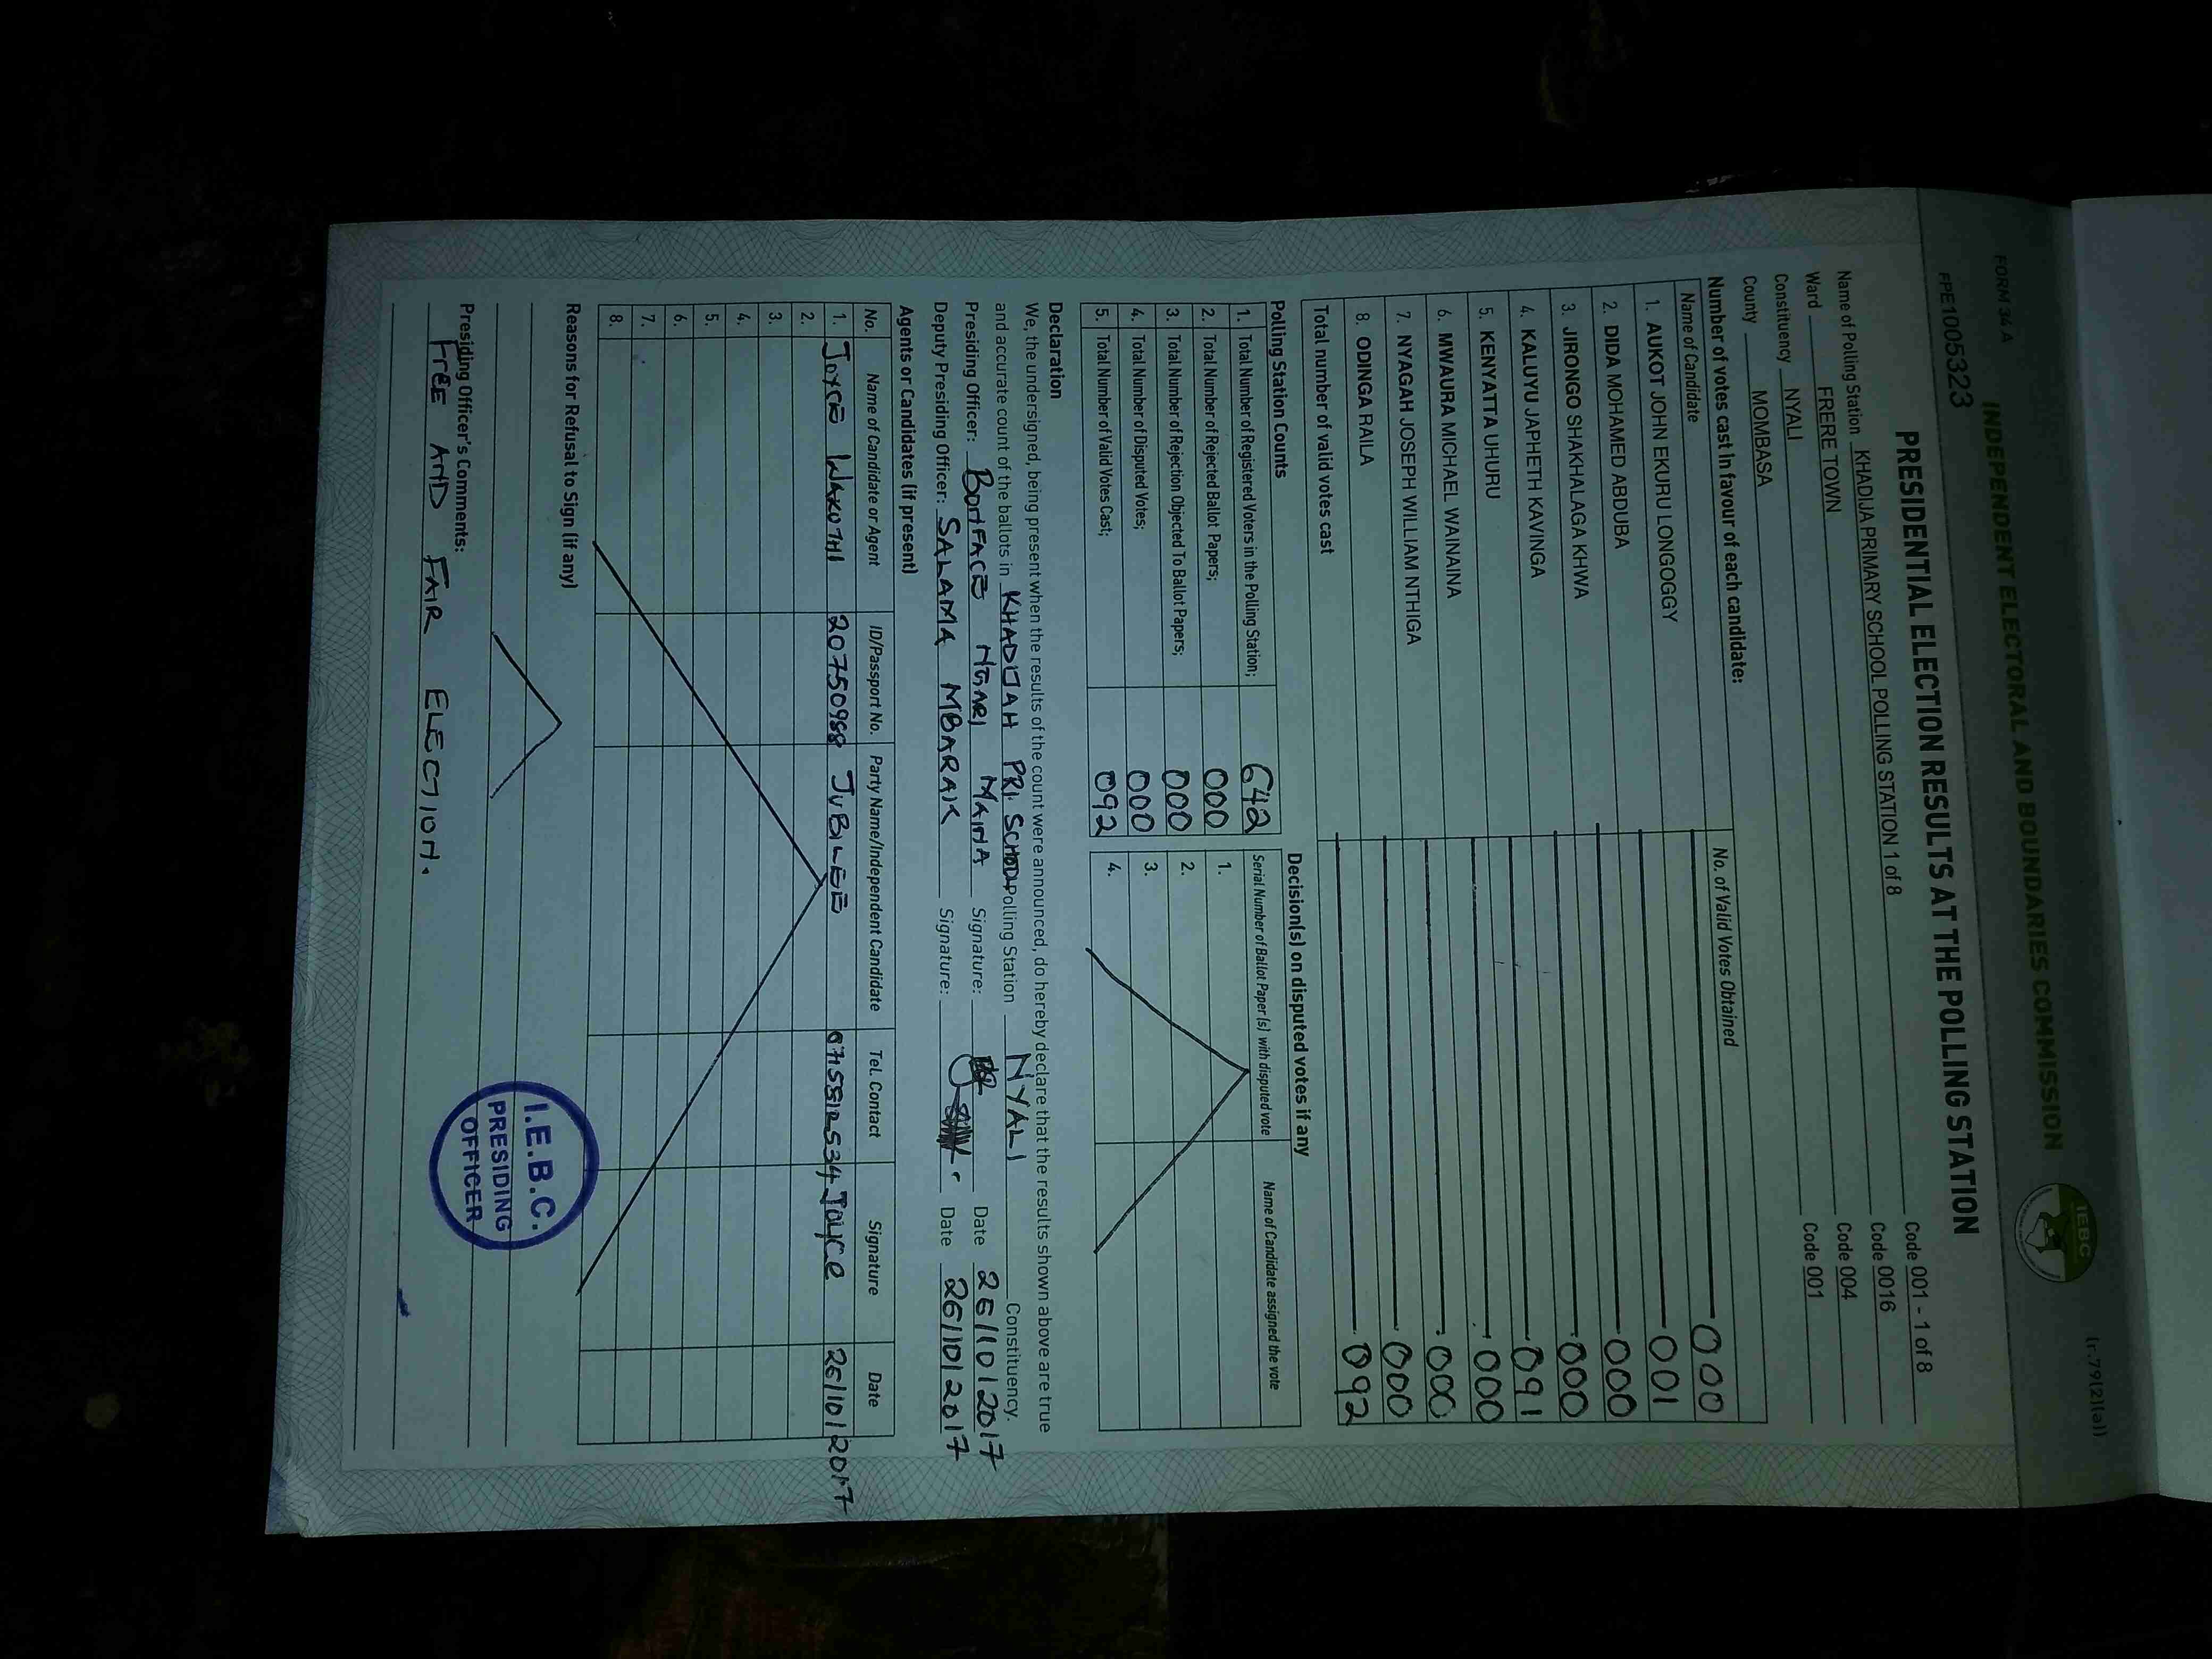 FORM 34A
(r.79(2)(a))
INDEPENDENT ELECTORAL AND BOUNDARIES COMMISSION
IEBC
PRE1005323
PRESIDENTIAL ELECTION RESULTS AT THE POLLING STATION
Name of Polling Station KHADIJA PRIMARY SCHOOL POLLING STATION 1 of 8 Code 001 - 1 of 8
Ward FRERE TOWN Code 0016
Constituency NYALI Code 004
County MOMBASA Code 001
Number of votes cast in favour of each candidate:
Name of Candidate No. of Valid Votes Obtained
1. AUKOT JOHN EKURU LONGOGGY 000
2. DIDA MOHAMED ABDUBA 001
3. JIRONGO SHAKHALAGA KHWA 000
4. KALUYU JAPHETH KAVINGA 000
5. KENYATTA UHURU 091
6. MWAURA MICHAEL WAINAINA 000
7. NYAGAH JOSEPH WILLIAM NTHIGA 000
8. ODINGA RAILA 000
Total number of valid votes cast 092
Polling Station Counts
1. Total Number of Registered Voters in the Polling Station; 642
2. Total Number of Rejected Ballot Papers; 000
3. Total Number of Rejection Objected To Ballot Papers; 000
4. Total Number of Disputed Votes; 000
5. Total Number of Valid Votes Cast; 092
Decision(s) on disputed votes if any
Serial Number of Ballot Paper (s) with disputed vote Name of Candidate assigned the vote
1.
2.
3.
4.
Declaration
We, the undersigned, being present when the results of the count were announced, do hereby declare that the results shown above are true
and accurate count of the ballots in KHADIJAH PRI. SCHOOL Polling Station NYALI Constituency.
Presiding Officer: BONIFACE NGARI MAINA Signature: Date 26/10/2017
Deputy Presiding Officer: SALAMA MBARAK Signature: Date 26/10/2017
Agents or Candidates (if present)
No. Name of Candidate or Agent ID/Passport No. Party Name/Independent Candidate Tel. Contact Signature Date
1. JOYCE WAKUTHI 20750988 JUBILEE 0715512534 Joyce 26/10/2017
2.
3.
4.
5.
6.
7.
8.
Reasons for Refusal to Sign (if any)
Presiding Officer's Comments:
FREE AND FAIR ELECTION.
I.E.B.C.
PRESIDING
OFFICER